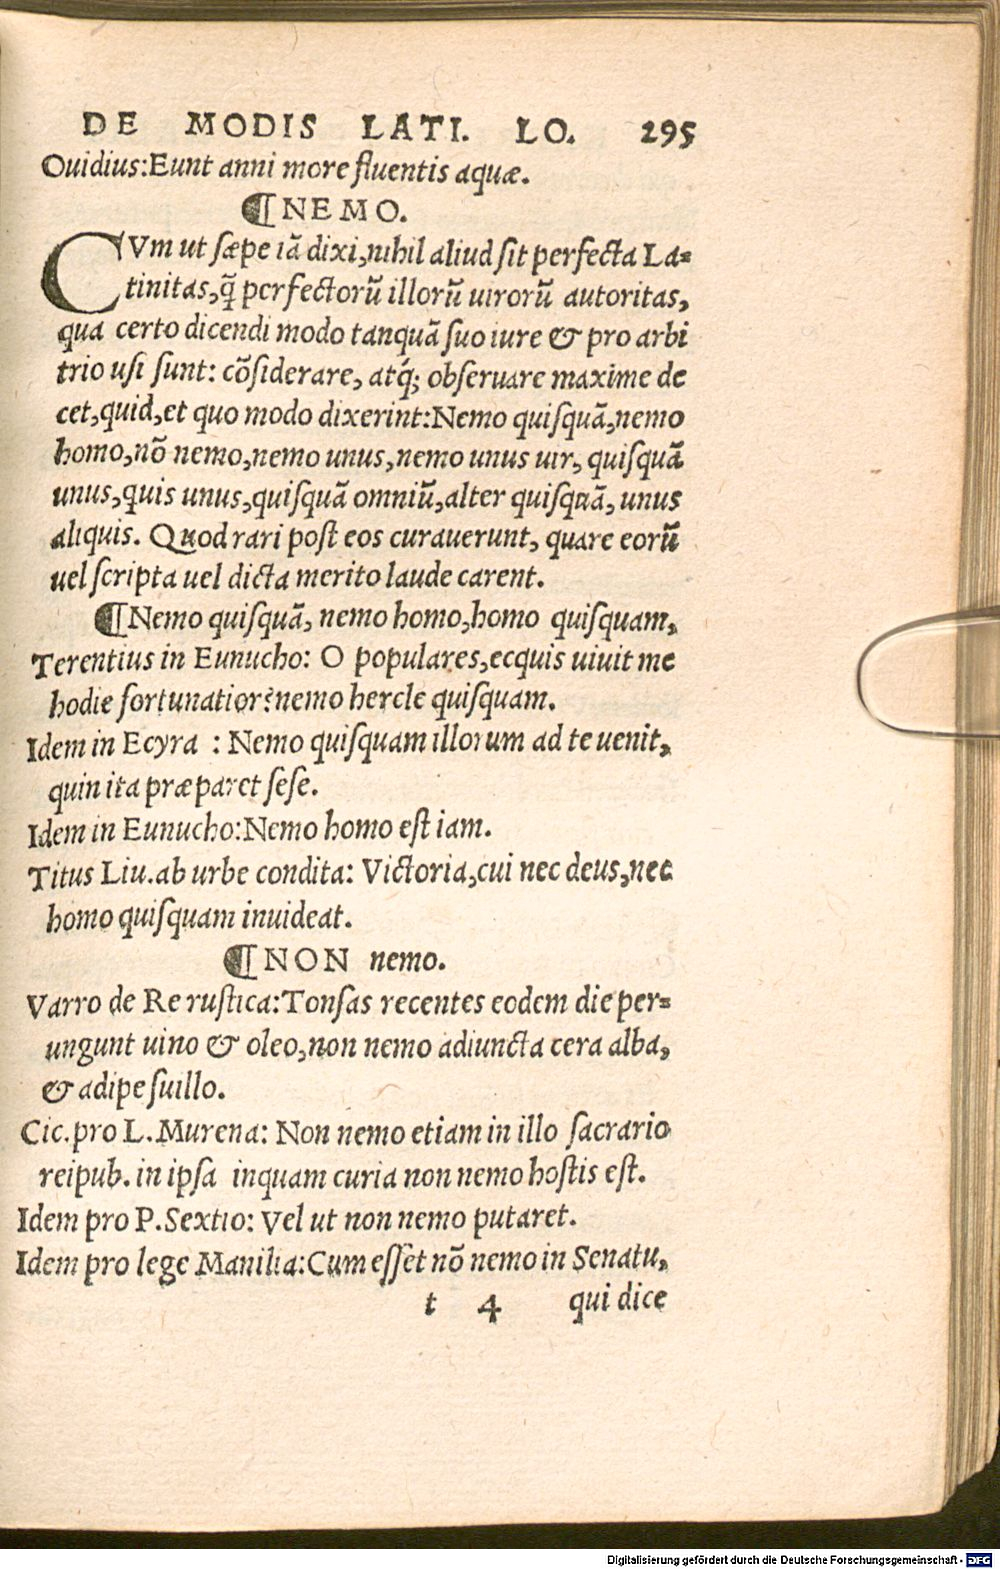 DE MODIS LATI. LO. 295
Ouidius:Eunt anni more fluentis aquæ.
¶NEMO.
CVm ut sæpe iā dixi,nihil aliud sit perfecta La=
tinitas,q̄ perfectorū illorū uirorū autoritas,
qua certo dicendi modo tanquā suo iure & pro arbi
trio usi sunt: cōsiderare, atq́; obseruare maxime de
cet,quid,et quo modo dixerint:Nemo quisquā,nemo
homo,nō nemo,nemo unus,nemo unus uir, quisquā
unus,quis unus,quisquā omniū,alter quisquā, unus
aliquis. Quod rari post eos curauerunt, quare eorū
uel scripta uel dicta merito laude carent.
¶Nemo quisquā, nemo homo,homo quisquam,
Terentius in Eunucho: O populares,ecquis uiuit me
hodie fortunatior?nemo hercle quisquam.
Idem in Ecyra : Nemo quisquam illorum ad te uenit,
quin ita præparet sese.
Idem in Eunucho:Nemo homo est iam.
Titus Liu.ab urbe condita: Victoria,cui nec deus,nec
homo quisquam inuideat.
¶NON nemo.
Varro de Re rustica:Tonsas recentes eodem die per=
ungunt uino & oleo,non nemo adiuncta cera alba,
& adipe suillo.
Cic.pro L.Murena: Non nemo etiam in illo sacrario
reipub. in ipsa inquam curia non nemo hostis est.
Idem pro P.Sextio: Vel ut non nemo putaret.
Idem pro lege Manilia:Cum esset nō nemo in Senatu,
t 4 qui dice
Digitalisierung gefördert durch die Deutsche Forschungsgemeinschaft - DFG